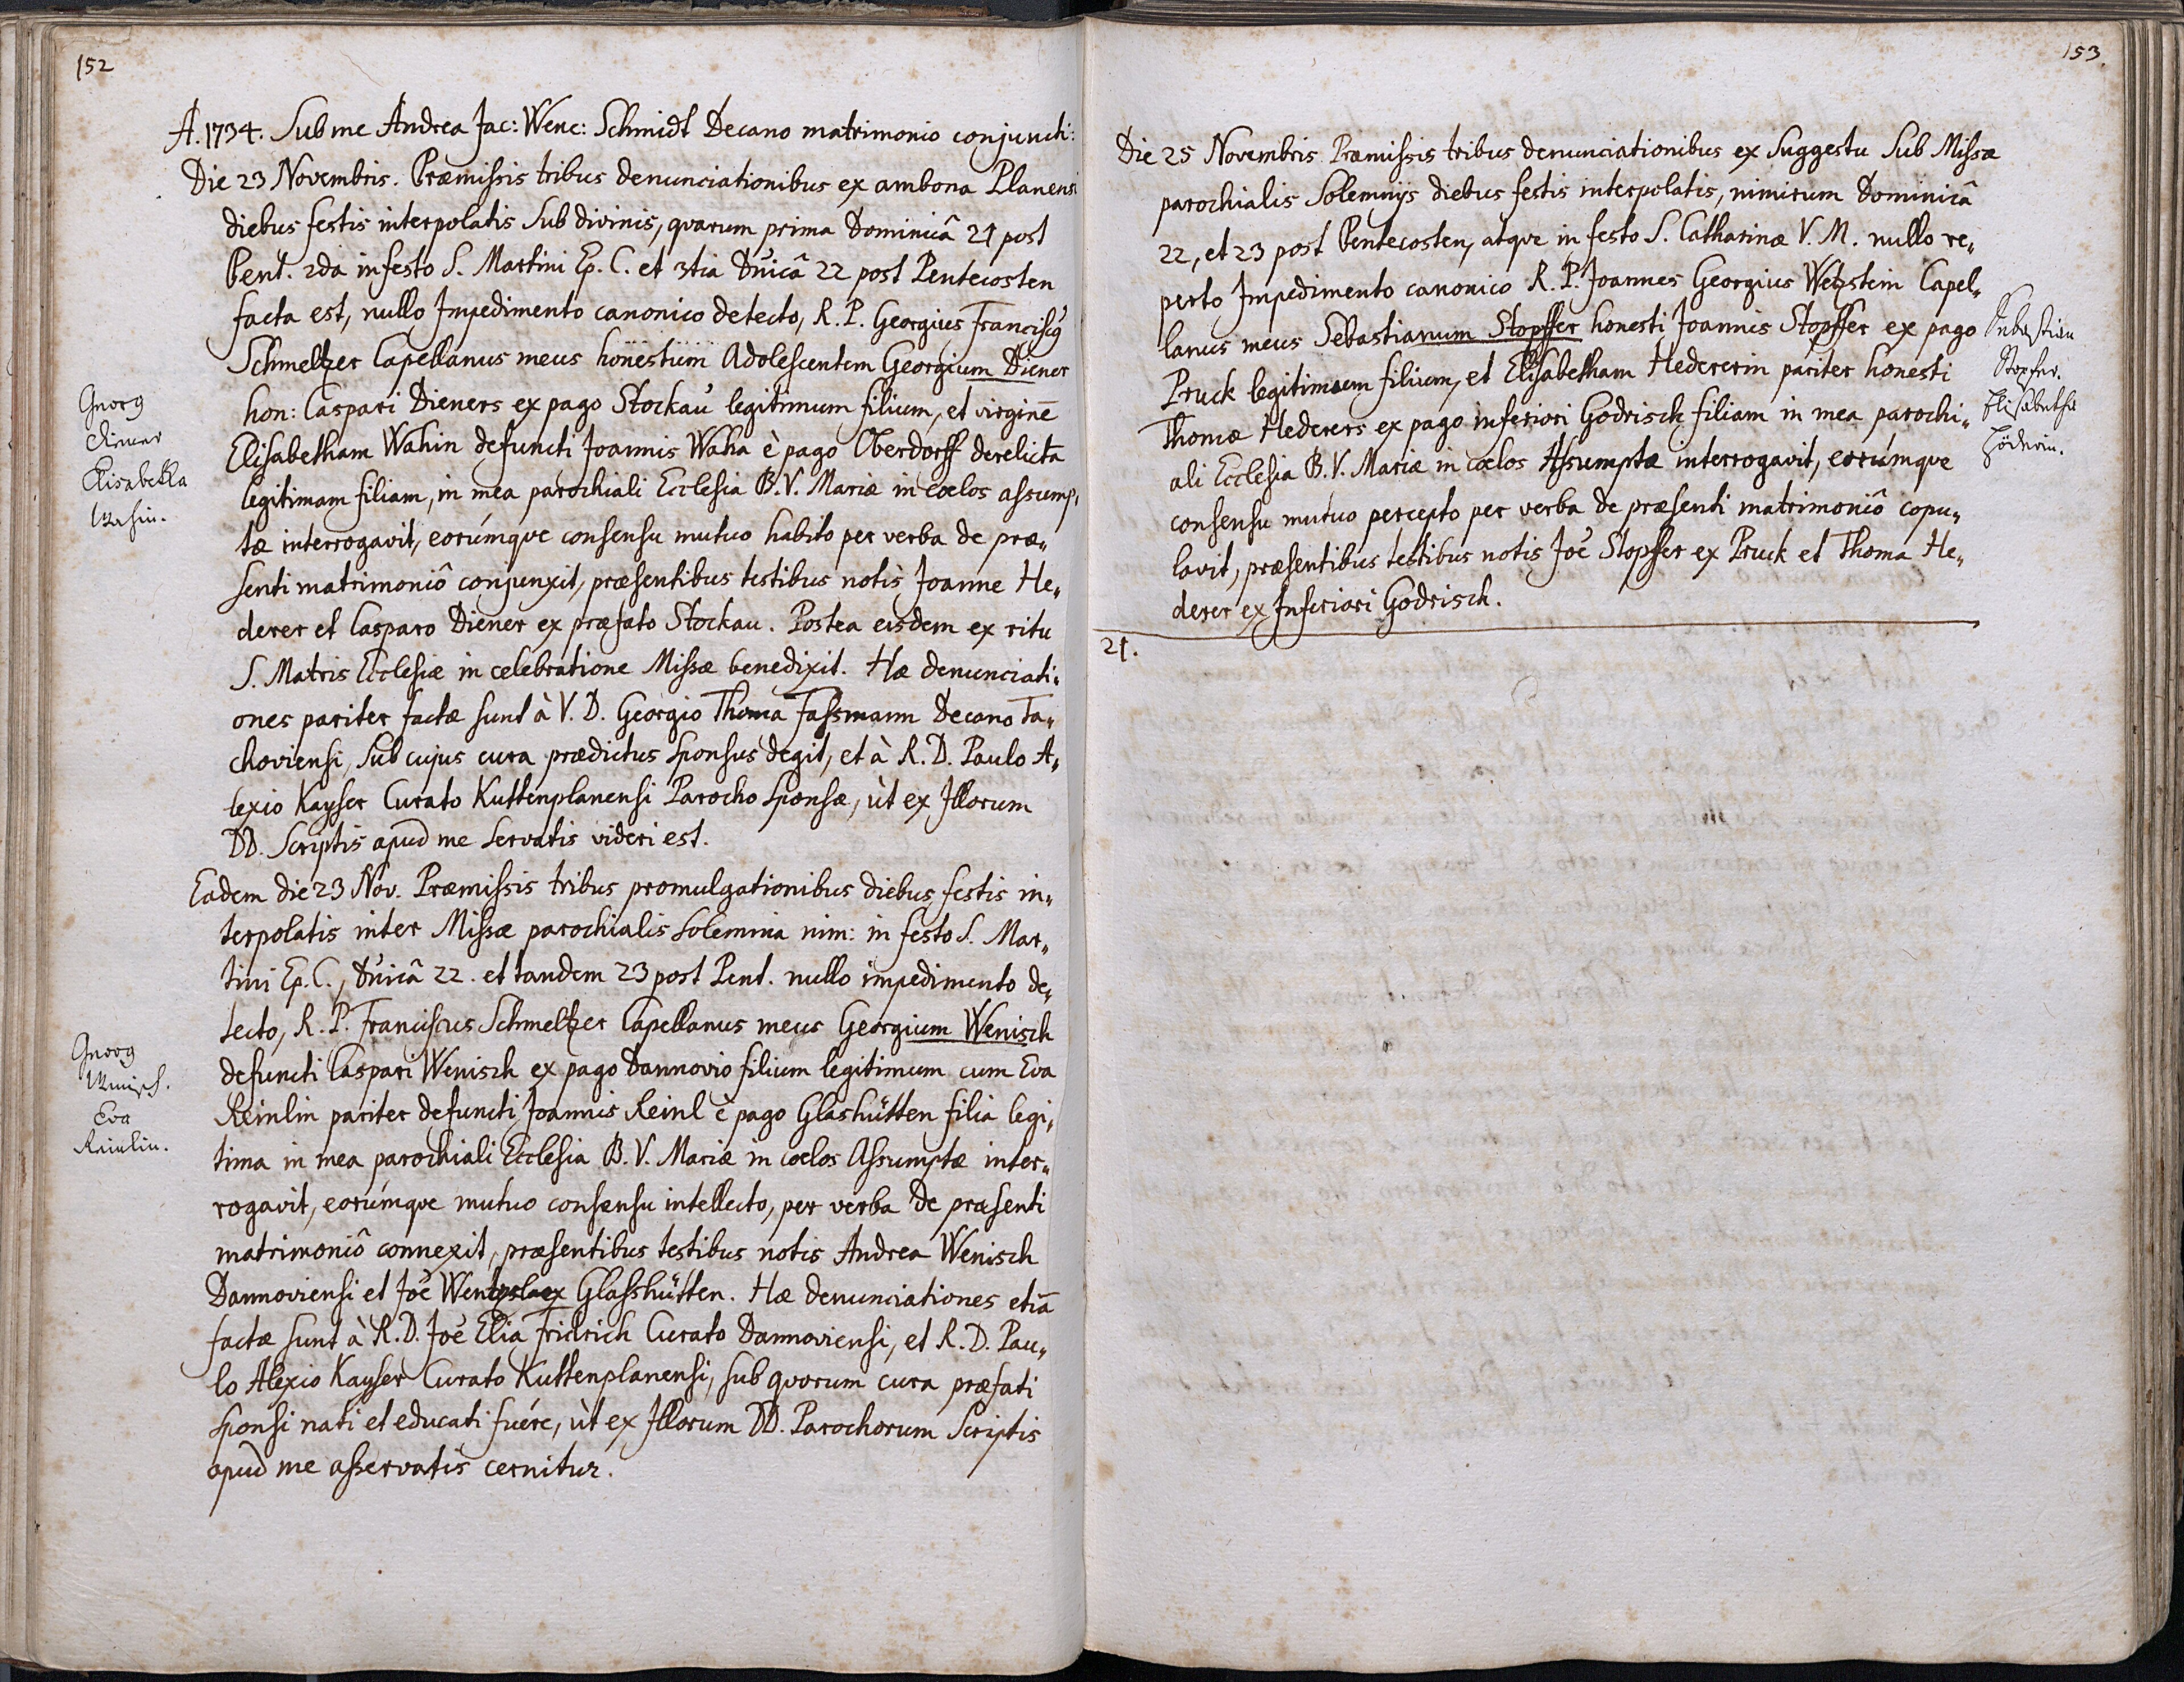 152
A. 1734. Sub me Andrea Jac: Wenc: Schmidt Decano matrimonio conjuncti:
Die 23 Novembris. Præmissis tribus denunciationibus ex ambona Planensi
diebus festis interpolatis sub divinis, qvarum prima Dominicâ 21 post
Pent. 2da in festo S. Martini Ep. C. et 3tia Dnicâ 22 post Pentecosten
facta est, nullo Impedimento canonico detecto, R. P. Georgius Franciscus
Schmeltzer Capellanus meus honestum Adolescentem Georgium Diener
hon: Caspari Dieners ex pago Stockau legitimum filium, et virginē
Elisabetham Wahin defuncti Joannis Waha è pago Oberdorff derelicta
legitimam filiam, in mea parochiali Ecclesia B. V. Mariæ in cœlos assump„
tæ interrogavit, eorúmqve consensu mutuo habito per verba de præ„
senti matrimoniô conjunxit, præsentibus testibus notis Joanne He„
derer et Casparo Diener ex præfato Stockau. Postea eisdem ex ritu
S. Matris Ecclesiæ in celebratione Missæ benedixit. Hæ denunciati„
ones pariter factæ sunt à V. D. Georgio Thoma Fassmann Decano Ta„
choviensi, sub cujus cura prædictus sponsus degit, et à R. D. Paulo A„
lexio Kayser Curato Kuttenplanensi Parocho sponsæ, ùt ex Illorum
DD. Scriptis apud me servatis videri est.
Georg
Diener
Elisabetha
Wahin.
Eadem die 23 Nov. Præmissis tribus promulgationibus diebus festis in„
terpolatis inter Missæ parochialis solemnia nim: in festo S. Mar„
tini Ep. C., Dnicâ 22. et tandem 23 post Pent. nullo impedimento de„
tecto, R. P. Franciscus Schmeltzer Capellanus meus Georgium Wenisch
defuncti Caspari Wenisch ex pago Dannovio filium legitimum cum Eva
Reinlin pariter defuncti Joannis Reinl è pago Glashütten filia legi„
tima in mea parochiali Ecclesia B. V. Mariæ in cœlos Assumptæ inter„
rogavit, eorúmqve mutuo consensu intellecto, per verba de præsenti
matrimoniô connexit, præsentibus testibus notis Andrea Wenisch
Dannoviensi et Joe ex Glasshütten. Hæ denunciationes etiā
factæ sunt à R. D. Joe Elia Fridrich Curato Dannoviensi, et R. D. Pau„
lo Alexio Kayser Curato Kuttenplanensi, sub qvorum cura præfati
sponsi nati et educati fuére, ùt ex Illorum DD. Parochorum Scriptis
apud me asservatis cernitur.
Georg
Wenisch.
Eva
Reinlin.
153.
Die 25 Novembris Præmissis tribus denunciationibus ex Suggestu Sub Missæ
parochialis Solemnijs diebus festis interpolatis, nimirum Dominicâ
22, et 23 post Pentecosten, atqve in festo S. Catharinæ V. M. nullo re„
perto Impedimento canonico R. P. Joannes Georgius Wetzstein Capel„
lanus meus Sebastianum Stopffer honesti Joannis Stopffer ex pago
Pruck legitimum filium, et Elisabetham Hedererin pariter honesti
Thomæ Hederers ex pago inferiori Godrisch filiam in mea parochi„
ali Ecclesia B. V. Mariæ in cœlos Assumptæ interrogavit, eorúmqve
consensu mutuo percepto per verba de præsenti matrimoniô copu„
lavit, præsentibus testibus notis Joe Stopffer ex Pruck et Thoma He„
derer ex Inferiori Godrisch.
Sebastian
Stopfer.
Elisabetha
21.